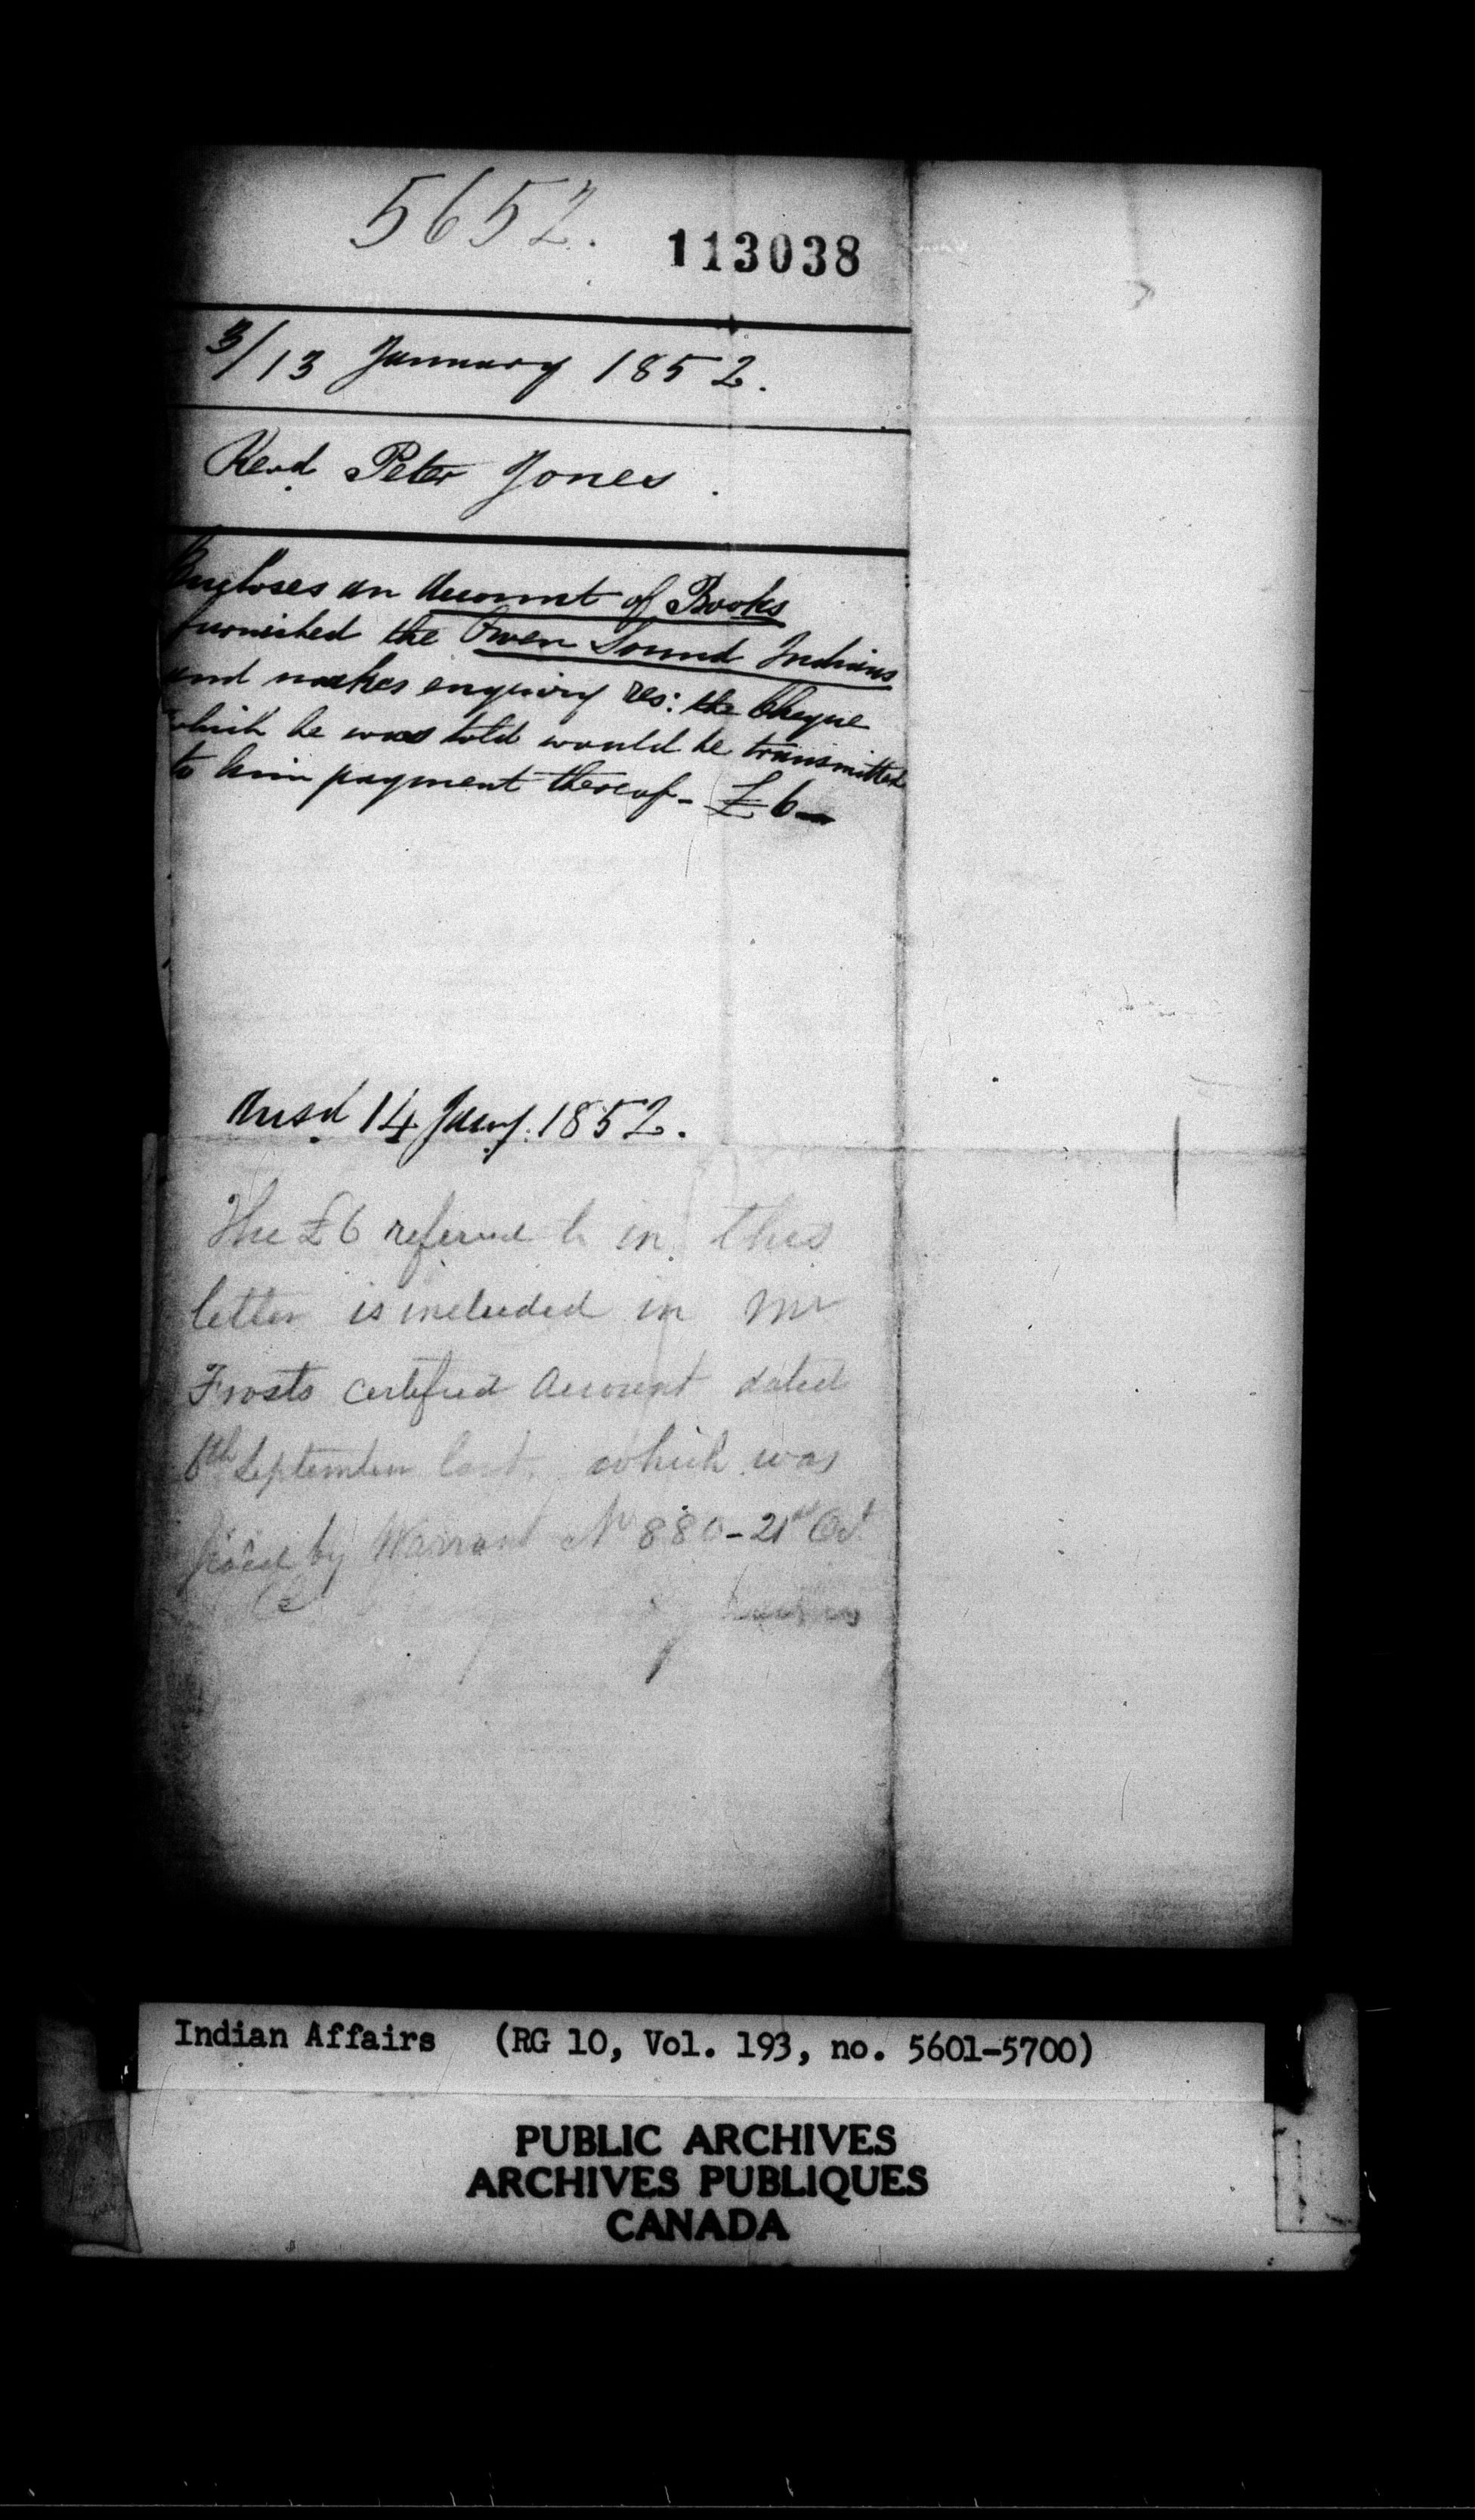 5652.
113038
3/13 January 1852.
Revd Peter Jones.
Encloses an Account of Books
furnished the Owen Sound Indians
and makes enquiry res: the Cheque
which he was told would be transmitted
to him payment thereof - £6 —
Ansd 14 Jany. 1852.
The £6 referred to in this
letter is included in Mr
Frosts certified Account dated
6th September last, which was
by Warrant No 880 - 21st Oct
Indian Affairs (RG 10, Vol. 193, no. 5601-5700)
PUBLIC ARCHIVES
ARCHIVES PUBLIQUES
CANADA